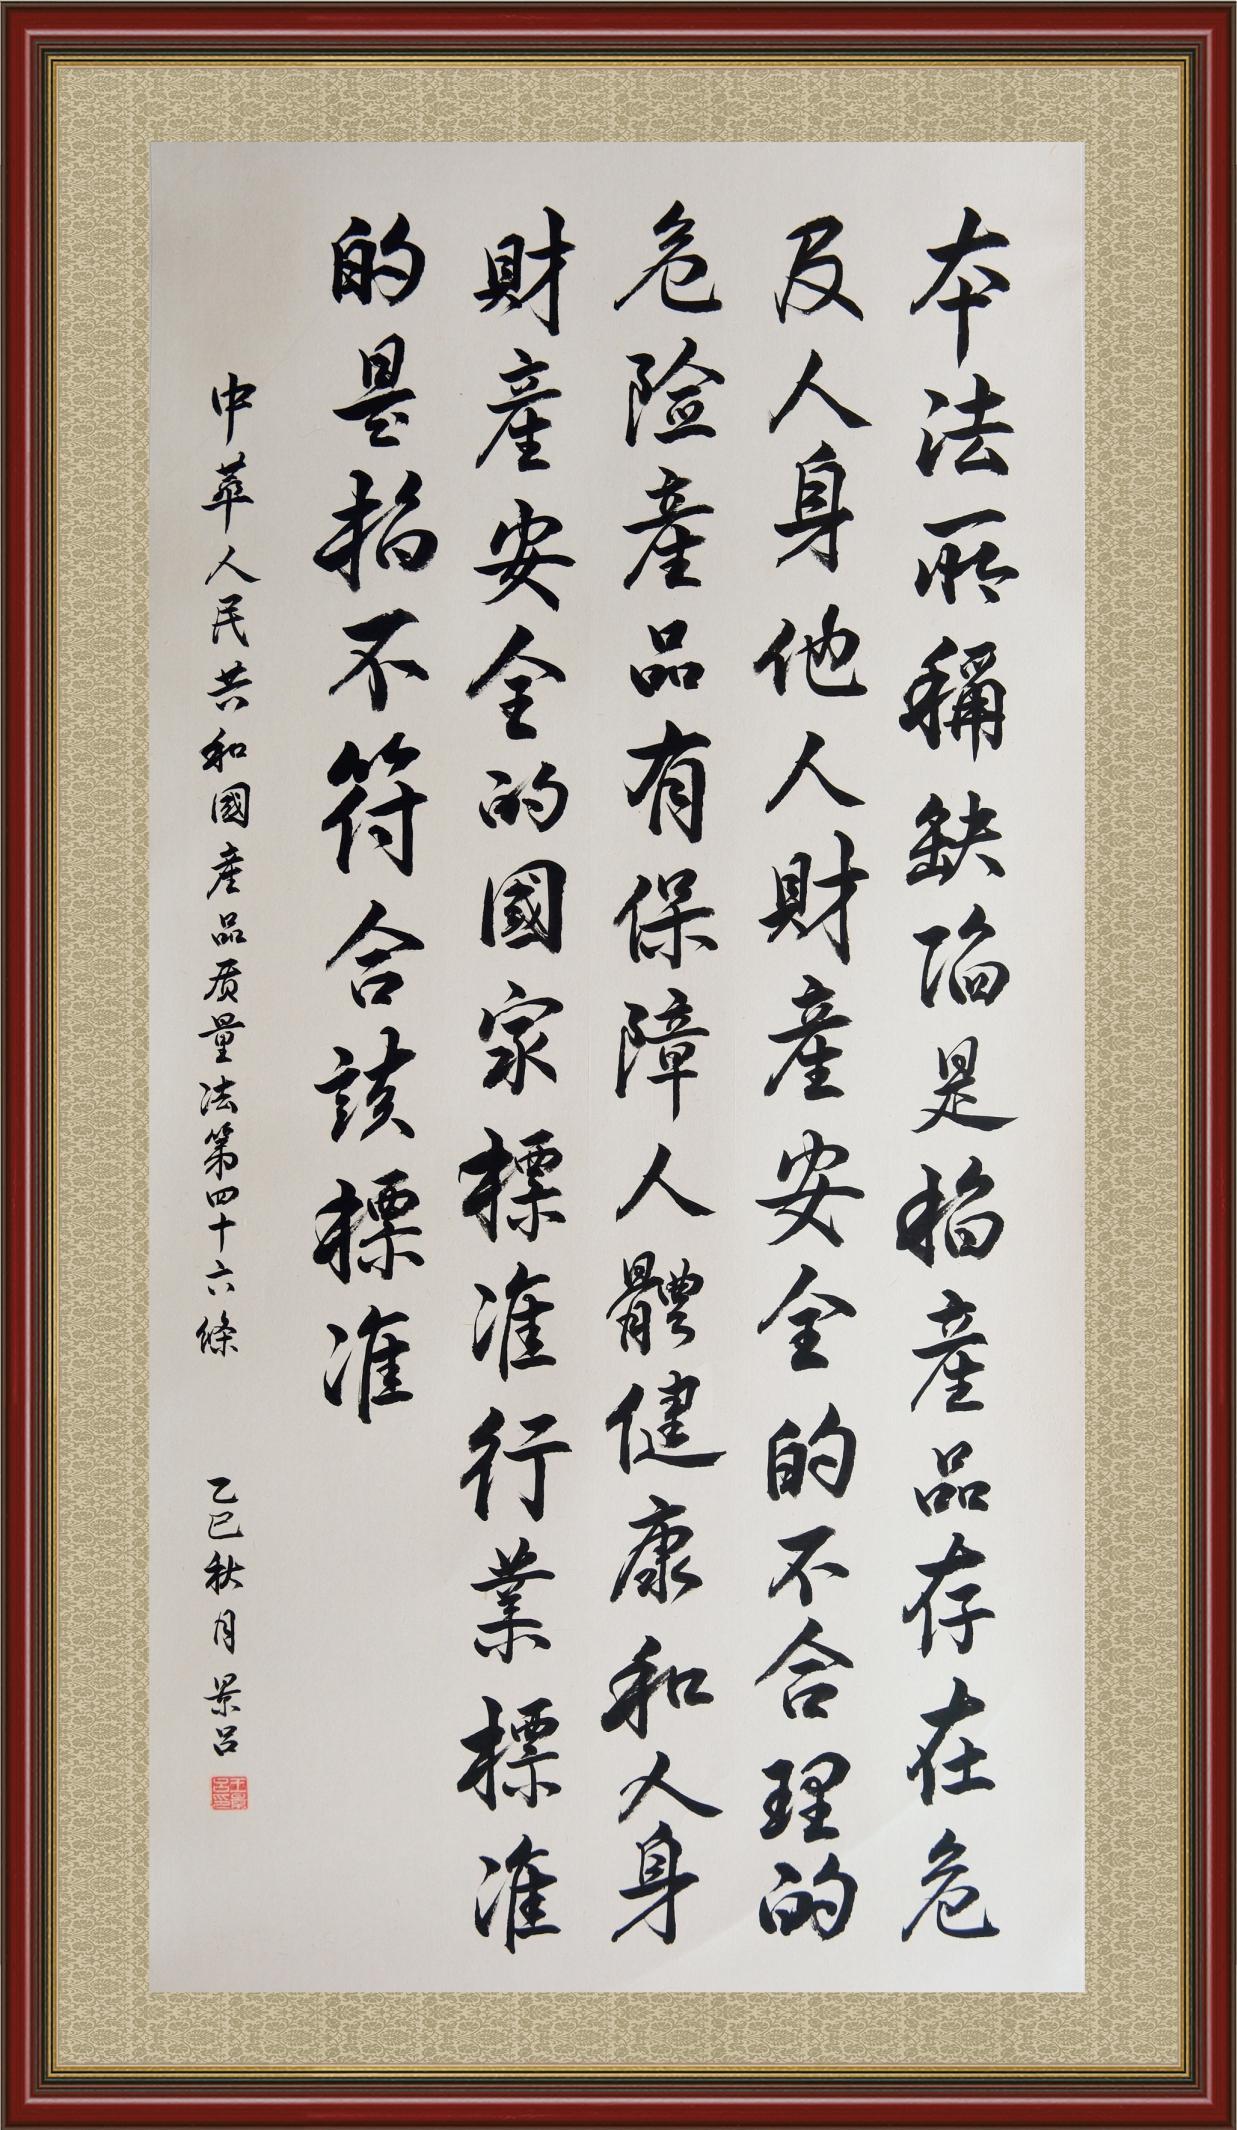 本法所稱缺陷是指產品存在危
及人身他人財產安全的不合理的
危险產品有保障人體健康和人身
財產安全的國家標准行業標准
的是指不符合該標准
中華人民共和國產品质量法第四十六條
乙巳秋月 景吕
王景吕印